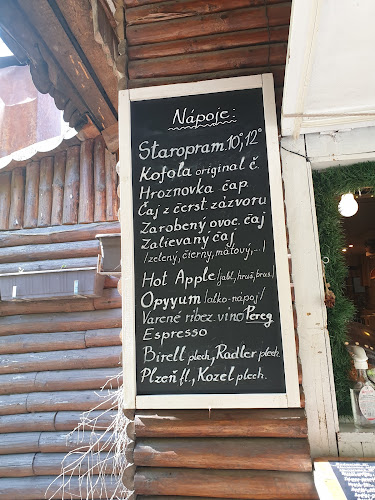 Nápoje:
Staropram. 10°, 12°
Kofola original č.
Hroznovka čap.
Čaj z čerst. zázvoru
Zarobený ovoc. čaj
Zalievaný čaj
/zelený, čierny, mätový,.../
Hot Apple /jabl., hruš, bros./
Opyyum /alko-nápoj/
Varené ríbez. víno Pereg
Espresso
Birell plech, Radler plech.
Plzeň fľ., Kozel plech.